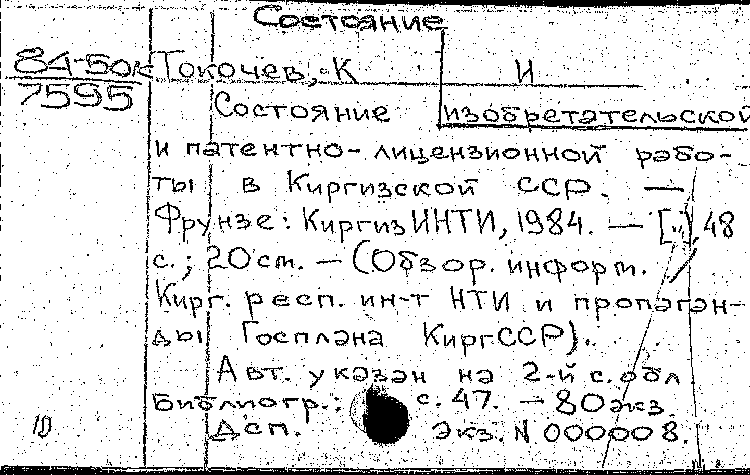 Состояние
84-50к Токочев, К И
7595
Состояние изобретательской
и патентно-лицензионной рабо-
ты в Киргизской ССР. —
Фрунзе: КиргизИНТИ, 1984. — [.], 48
с.; 20 cm. — (Обзор. информ. /
Кирг. респ. ин-т НТИ и пропаган-
ды Госплана КиргССР).
Авт. указан на 2-й с. обл
Библиогр.: с. 47. — 80 экз.
Дсп. Экз. N 000008.
10